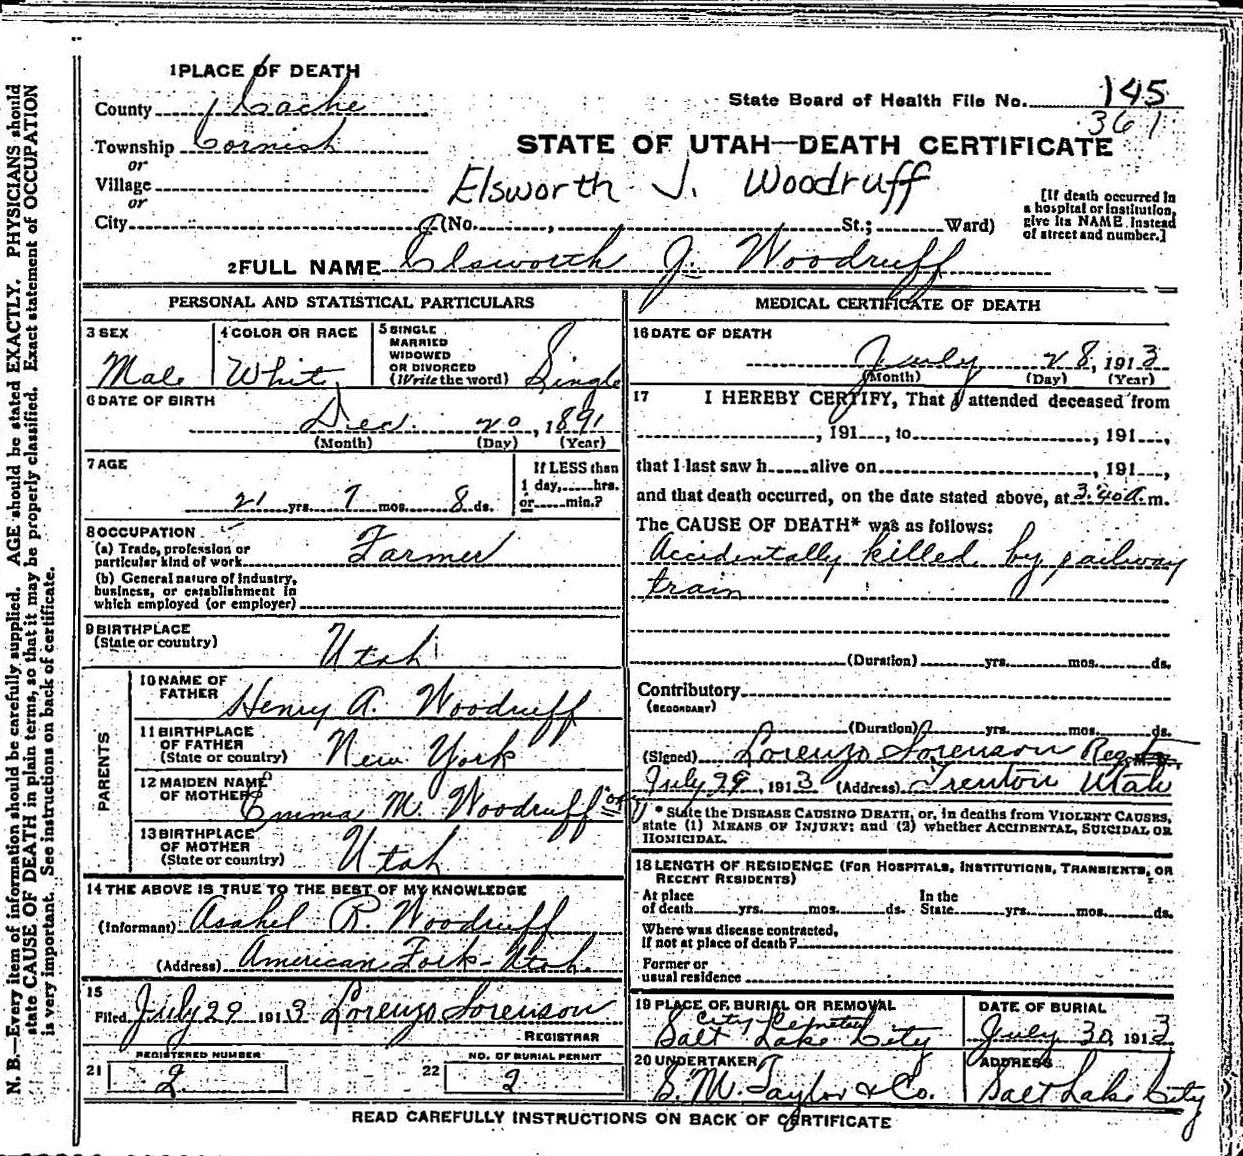 1 PLACE OF DEATH
County Cache
State Board of Health File No. 145
361
Township Cornish
STATE OF UTAH—DEATH CERTIFICATE
or
Village
Elsworth J. Woodruff
or
City (No. , St.; Ward)
[If death occurred in
a hospital or institution,
give its NAME instead
of street and number.]
2 FULL NAME Elsworth J. Woodruff
PERSONAL AND STATISTICAL PARTICULARS
3 SEX
Male
4 COLOR OR RACE
White
5 SINGLE
MARRIED
WIDOWED
OR DIVORCED
(Write the word) Single
6 DATE OF BIRTH
Dec. 20, 1891
(Month) (Day) (Year)
7 AGE
21 yrs. 7 mos. 8 ds.
If LESS than
1 day, hrs.
or min.?
8 OCCUPATION
(a) Trade, profession or
particular kind of work Farmer
(b) General nature of industry,
business, or establishment in
which employed (or employer)
9 BIRTHPLACE
(State or country) Utah
PARENTS
10 NAME OF
FATHER Henry A. Woodruff
11 BIRTHPLACE
OF FATHER
(State or country) New York
12 MAIDEN NAME
OF MOTHER Emma M. Woodruff
13 BIRTHPLACE
OF MOTHER
(State or country) Utah
14 THE ABOVE IS TRUE TO THE BEST OF MY KNOWLEDGE
(Informant) Asahel R. Woodruff
(Address) American Fork - Utah.
15
Filed July 29 1913 Lorenzo Sorenson
REGISTRAR
REGISTERED NUMBER
21 2
NO. OF BURIAL PERMIT
22 2
MEDICAL CERTIFICATE OF DEATH
16 DATE OF DEATH
July 28, 1913
(Month) (Day) (Year)
17 I HEREBY CERTIFY, That I attended deceased from
, 191 , to , 191 ,
that I last saw h alive on , 191 ,
and that death occurred, on the date stated above, at 3.40 a. m.
The CAUSE OF DEATH* was as follows:
Accidentally killed by railway
train
(Duration) yrs. mos. ds.
Contributory
(SECONDARY)
(Duration) yrs. mos. ds.
(Signed) Lorenzo Sorenson Regstr M. D.
July 29, 1913 (Address) Trenton Utah
* State the DISEASE CAUSING DEATH, or, in deaths from VIOLENT CAUSES,
state (1) MEANS OF INJURY; and (2) whether ACCIDENTAL, SUICIDAL OR
HOMICIDAL.
18 LENGTH OF RESIDENCE (FOR HOSPITALS, INSTITUTIONS, TRANSIENTS, OR
RECENT RESIDENTS)
At place
of death yrs. mos. ds.
In the
State yrs. mos. ds.
Where was disease contracted,
if not at place of death?
Former or
usual residence
19 PLACE OF BURIAL OR REMOVAL
City Cemetery
Salt Lake City
DATE OF BURIAL
July 30, 1913
20 UNDERTAKER
S. M. Taylor & Co.
ADDRESS
Salt Lake City
READ CAREFULLY INSTRUCTIONS ON BACK OF CERTIFICATE
N. B.—Every item of information should be carefully supplied. AGE should be stated EXACTLY. PHYSICIANS should
state CAUSE OF DEATH in plain terms, so that it may be properly classified. Exact statement of OCCUPATION
is very important. See instructions on back of certificate.